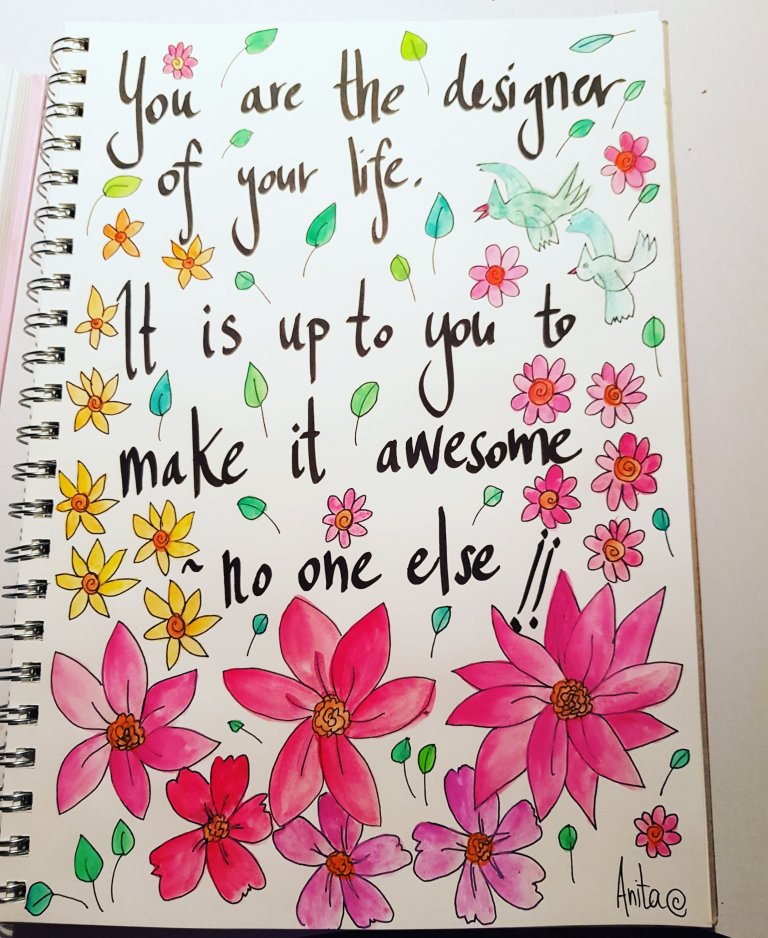 You are the designer
of your life.
It is up to you to
make it awesome
~ no one else !!
Anita ©